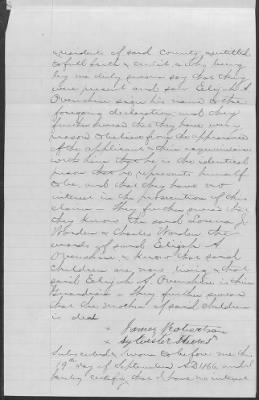 residents of said County, entitled
to full faith & credit, who being
by me duly sworn say that they
were present and saw Elijah A.
Overshire sign his name to the
foregoing declaration and they
further swear that they have every
reason to believe from the appearance
of the applicant & their acquaintance
with him that he is the identical
person that he represents himself
to be, and that they have no
interest in the prosecution of this
claim. They further swear that
they know the said Louisa J.
Worden & Charles Worden the
wards of said Elijah A.
Overshire & know that said
children are now living & that
said Elijah A. Overshire is their
Guardian. They further swear
that the mother of said children
is dead
James Robertson
Sylvester
Subscribed & sworn to before me this
19th day of September AD 1866 and I
hereby certify that I have no interest